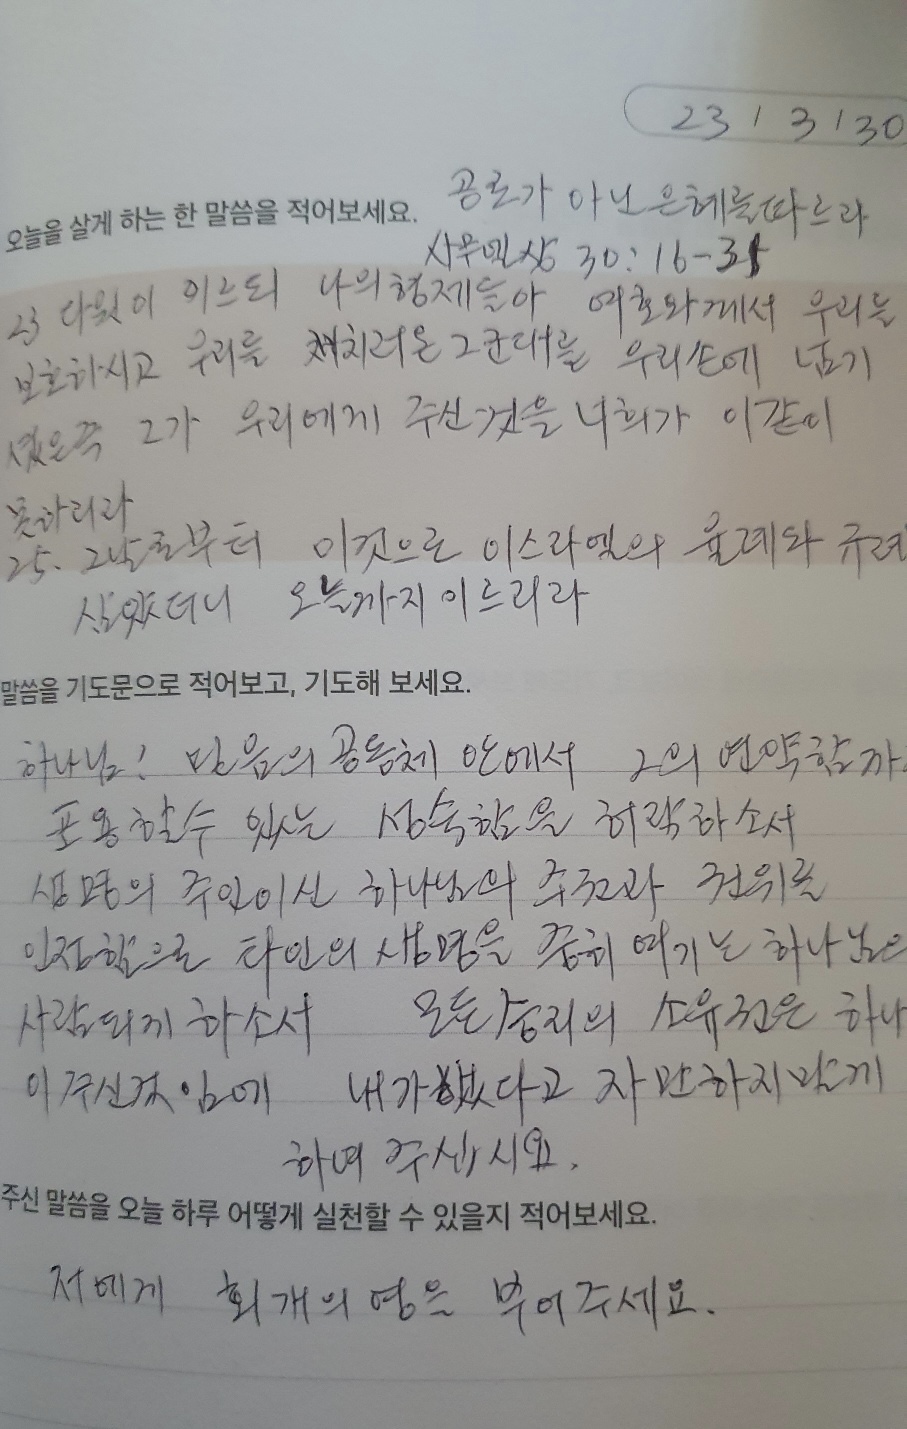 23 / 3 / 30
오늘을 살게 하는 한 말씀을 적어보세요. 공로가 아닌 은혜를 따르라
사무엘상 30:16-31
23 다윗이 이르되 나의 형제들아 여호와께서 우리를
보호하시고 우리를 치러온 그 군대를 우리손에 넘기
셨은즉 그가 우리에게 주신것을 너희가 이같이
못하리라
25. 그날로부터 이것으로 이스라엘의 율례와 규례
삼았더니 오늘까지 이르리라
말씀을 기도문으로 적어보고, 기도해 보세요.
하나님! 믿음의 공동체 안에서 그의 연약함까
포용할수 있는 성숙함을 허락하소서
생명의 주인이신 하나님의 주권과 권위를
인정함으로 타인의 생명을 중히 여기는 하나님은
사람되게 하소서 모든 승리의 소유권은 하나
이 주신것임에 내가 했다고 자만하지 않게
하여 주십시요.
주신 말씀을 오늘 하루 어떻게 실천할 수 있을지 적어보세요.
저에게 회개의 영을 부어주세요.